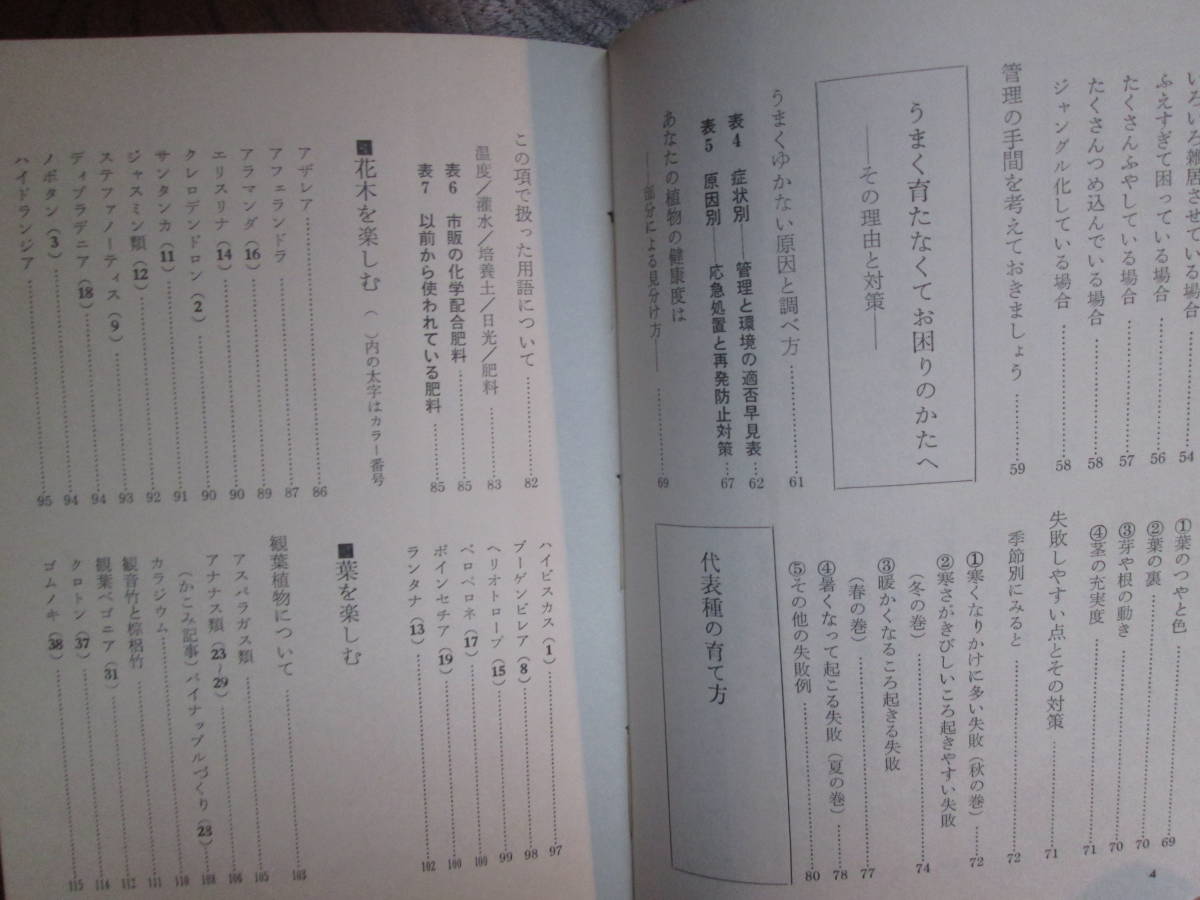 いろいろ雑居させている場合……54
ふえすぎて困っている場合……56
たくさんふやしている場合……57
たくさんつめ込んでいる場合……58
ジャングル化している場合……58
管理の手間を考えておきましょう……59
うまく育たなくてお困りのかたへ
——その理由と対策——
うまくゆかない原因と調べ方……61
表4 症状別——管理と環境の適否早見表……62
表5 原因別——応急処置と再発防止対策……67
あなたの植物の健康度は
——部分による見分け方——……69
①葉のつやと色……69
②葉の裏……70
③芽や根の動き……70
④茎の充実度……71
失敗しやすい点とその対策……71
季節別にみると……72
①寒くなりかけに多い失敗(秋の巻)……72
②寒さがきびしいころ起きやすい失敗
(冬の巻)……74
③暖かくなるころ起きる失敗
(春の巻)……77
④暑くなって起こる失敗(夏の巻)……78
⑤その他の失敗例……80
代表種の育て方
4
この項で扱った用語について……82
温度/灌水/培養土/日光/肥料……83
表6 市販の化学配合肥料……85
表7 以前から使われている肥料……85
花木を楽しむ ( )内の太字はカラー番号
アザレア……86
アフェランドラ……87
アラマンダ(16)……89
エリスリナ(14)……90
クレロデンドロン(2)……90
サンタンカ(11)……91
ジャスミン類(12)……92
ステファノーティス(9)……93
ディプラデニア(18)……94
ノボタン(3)……94
ハイドランジア……95
ハイビスカス(1)……97
ブーゲンビレア(8)……98
ヘリオトロープ(15)……99
ベロペロネ(17)……100
ポインセチア(19)……100
ランタナ(13)……102
■葉を楽しむ
観葉植物について……103
アスパラガス類……105
アナナス類(23〜29)……106
(かこみ記事)パイナップルづくり(23)……108
カラジウム……110
観音竹と棕梠竹……111
観葉ベゴニア(31)……112
クロトン(37)……114
ゴムノキ(38)……115